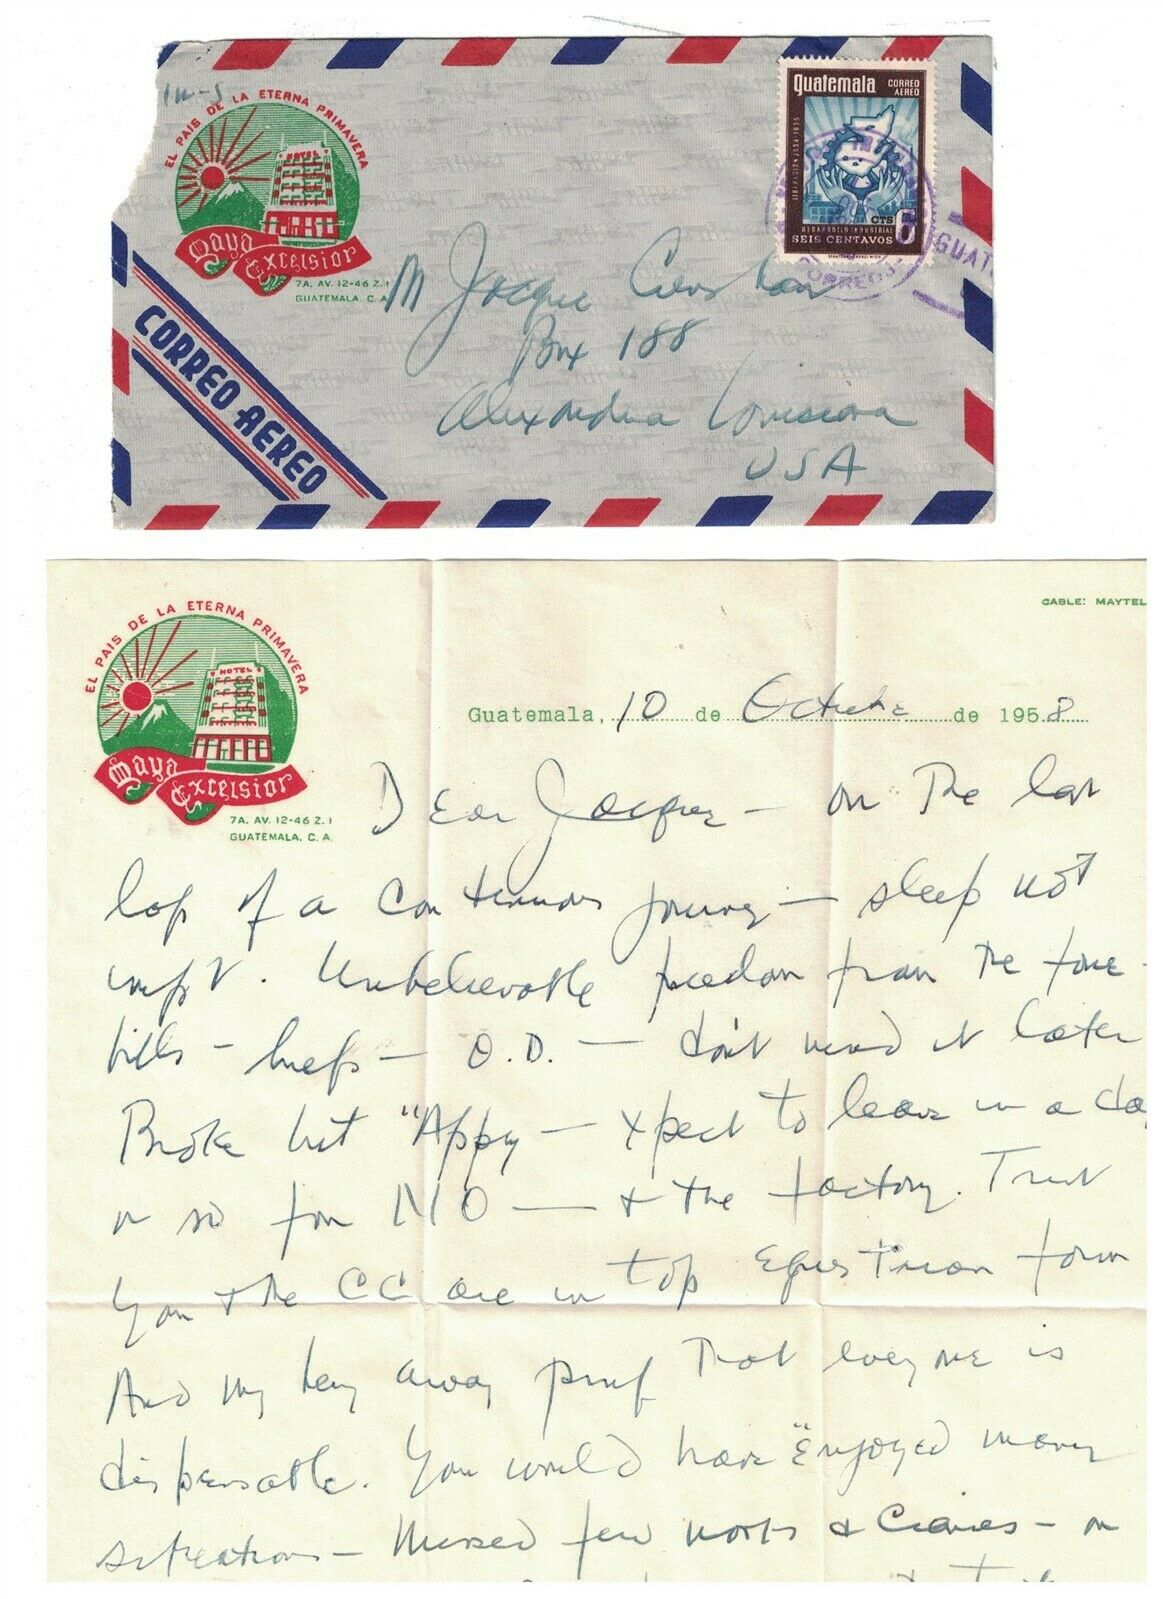 EL PAIS DE LA ETERNA PRIMAVERA
HOTEL
Maya
Excelsior
7A. AV. 12-46 Z.1
GUATEMALA, C. A.
CORREO AEREO
Guatemala
CORREO
AEREO
LIBERACION 1954-1955
6 CTS
DESARROLLO INDUSTRIAL
SEIS CENTAVOS
GUAT
M Jacque
Box 188
Alexandria Louisiana
USA
EL PAIS DE LA ETERNA PRIMAVERA
HOTEL
Maya
Excelsior
7A. AV. 12-46 Z.1
GUATEMALA, C. A.
CABLE: MAYTEL
Guatemala, 10 de Octubre de 1958
Dear Jacque — on the last
lap of a continuous — sleep not
Unbelievable freedom from the fone -
bills — briefs — O.D. — don't need it later
Broke but "Appy — xpect to leave in a da
or so for NO — & the factory. Trust
You & the CC are in top Equestrian form
And my being away proof that everyone is
dispensable. You would have "Enjoyed many
situations — Missed few &